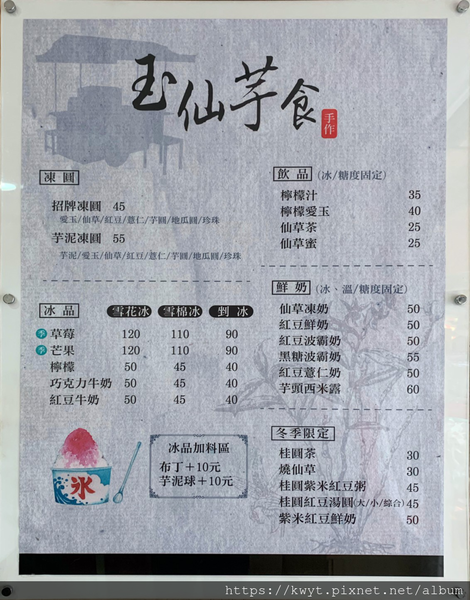 玉仙芋食
手作
凍圓
招牌凍圓 45
愛玉/仙草/紅豆/薏仁/芋圓/地瓜圓/珍珠
芋泥凍圓 55
芋泥/愛玉/仙草/紅豆/薏仁/芋圓/地瓜圓/珍珠
冰品 雪花冰 雪棉冰 剉冰
季 草莓 120 110 90
季 芒果 120 110 90
檸檬 50 45 40
巧克力牛奶 50 45 40
紅豆牛奶 50 45 40
氷
冰品加料區
布丁+10元
芋泥球+10元
飲品 (冰/糖度固定)
檸檬汁 35
檸檬愛玉 40
仙草茶 25
仙草蜜 25
鮮奶 (冰、溫/糖度固定)
仙草凍奶 50
紅豆鮮奶 50
紅豆波霸奶 50
黑糖波霸奶 55
紅豆薏仁奶 50
芋頭西米露 60
冬季限定
桂圓茶 30
燒仙草 30
桂圓紫米紅豆粥 45
桂圓紅豆湯圓(大/小/綜合) 45
紫米紅豆鮮奶 50
https://kwyt.pixnet.net/album